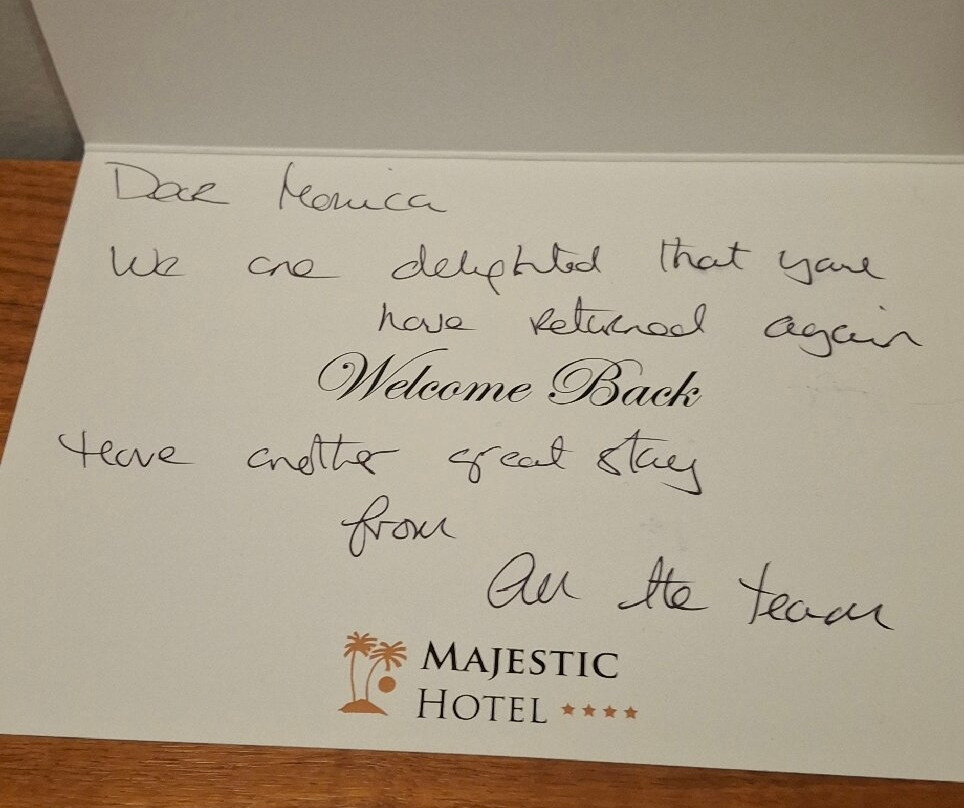 Dear Monica
We are delighted that you
have returned again
Welcome Back
Have another great stay
from
All the team
MAJESTIC
HOTEL ★★★★